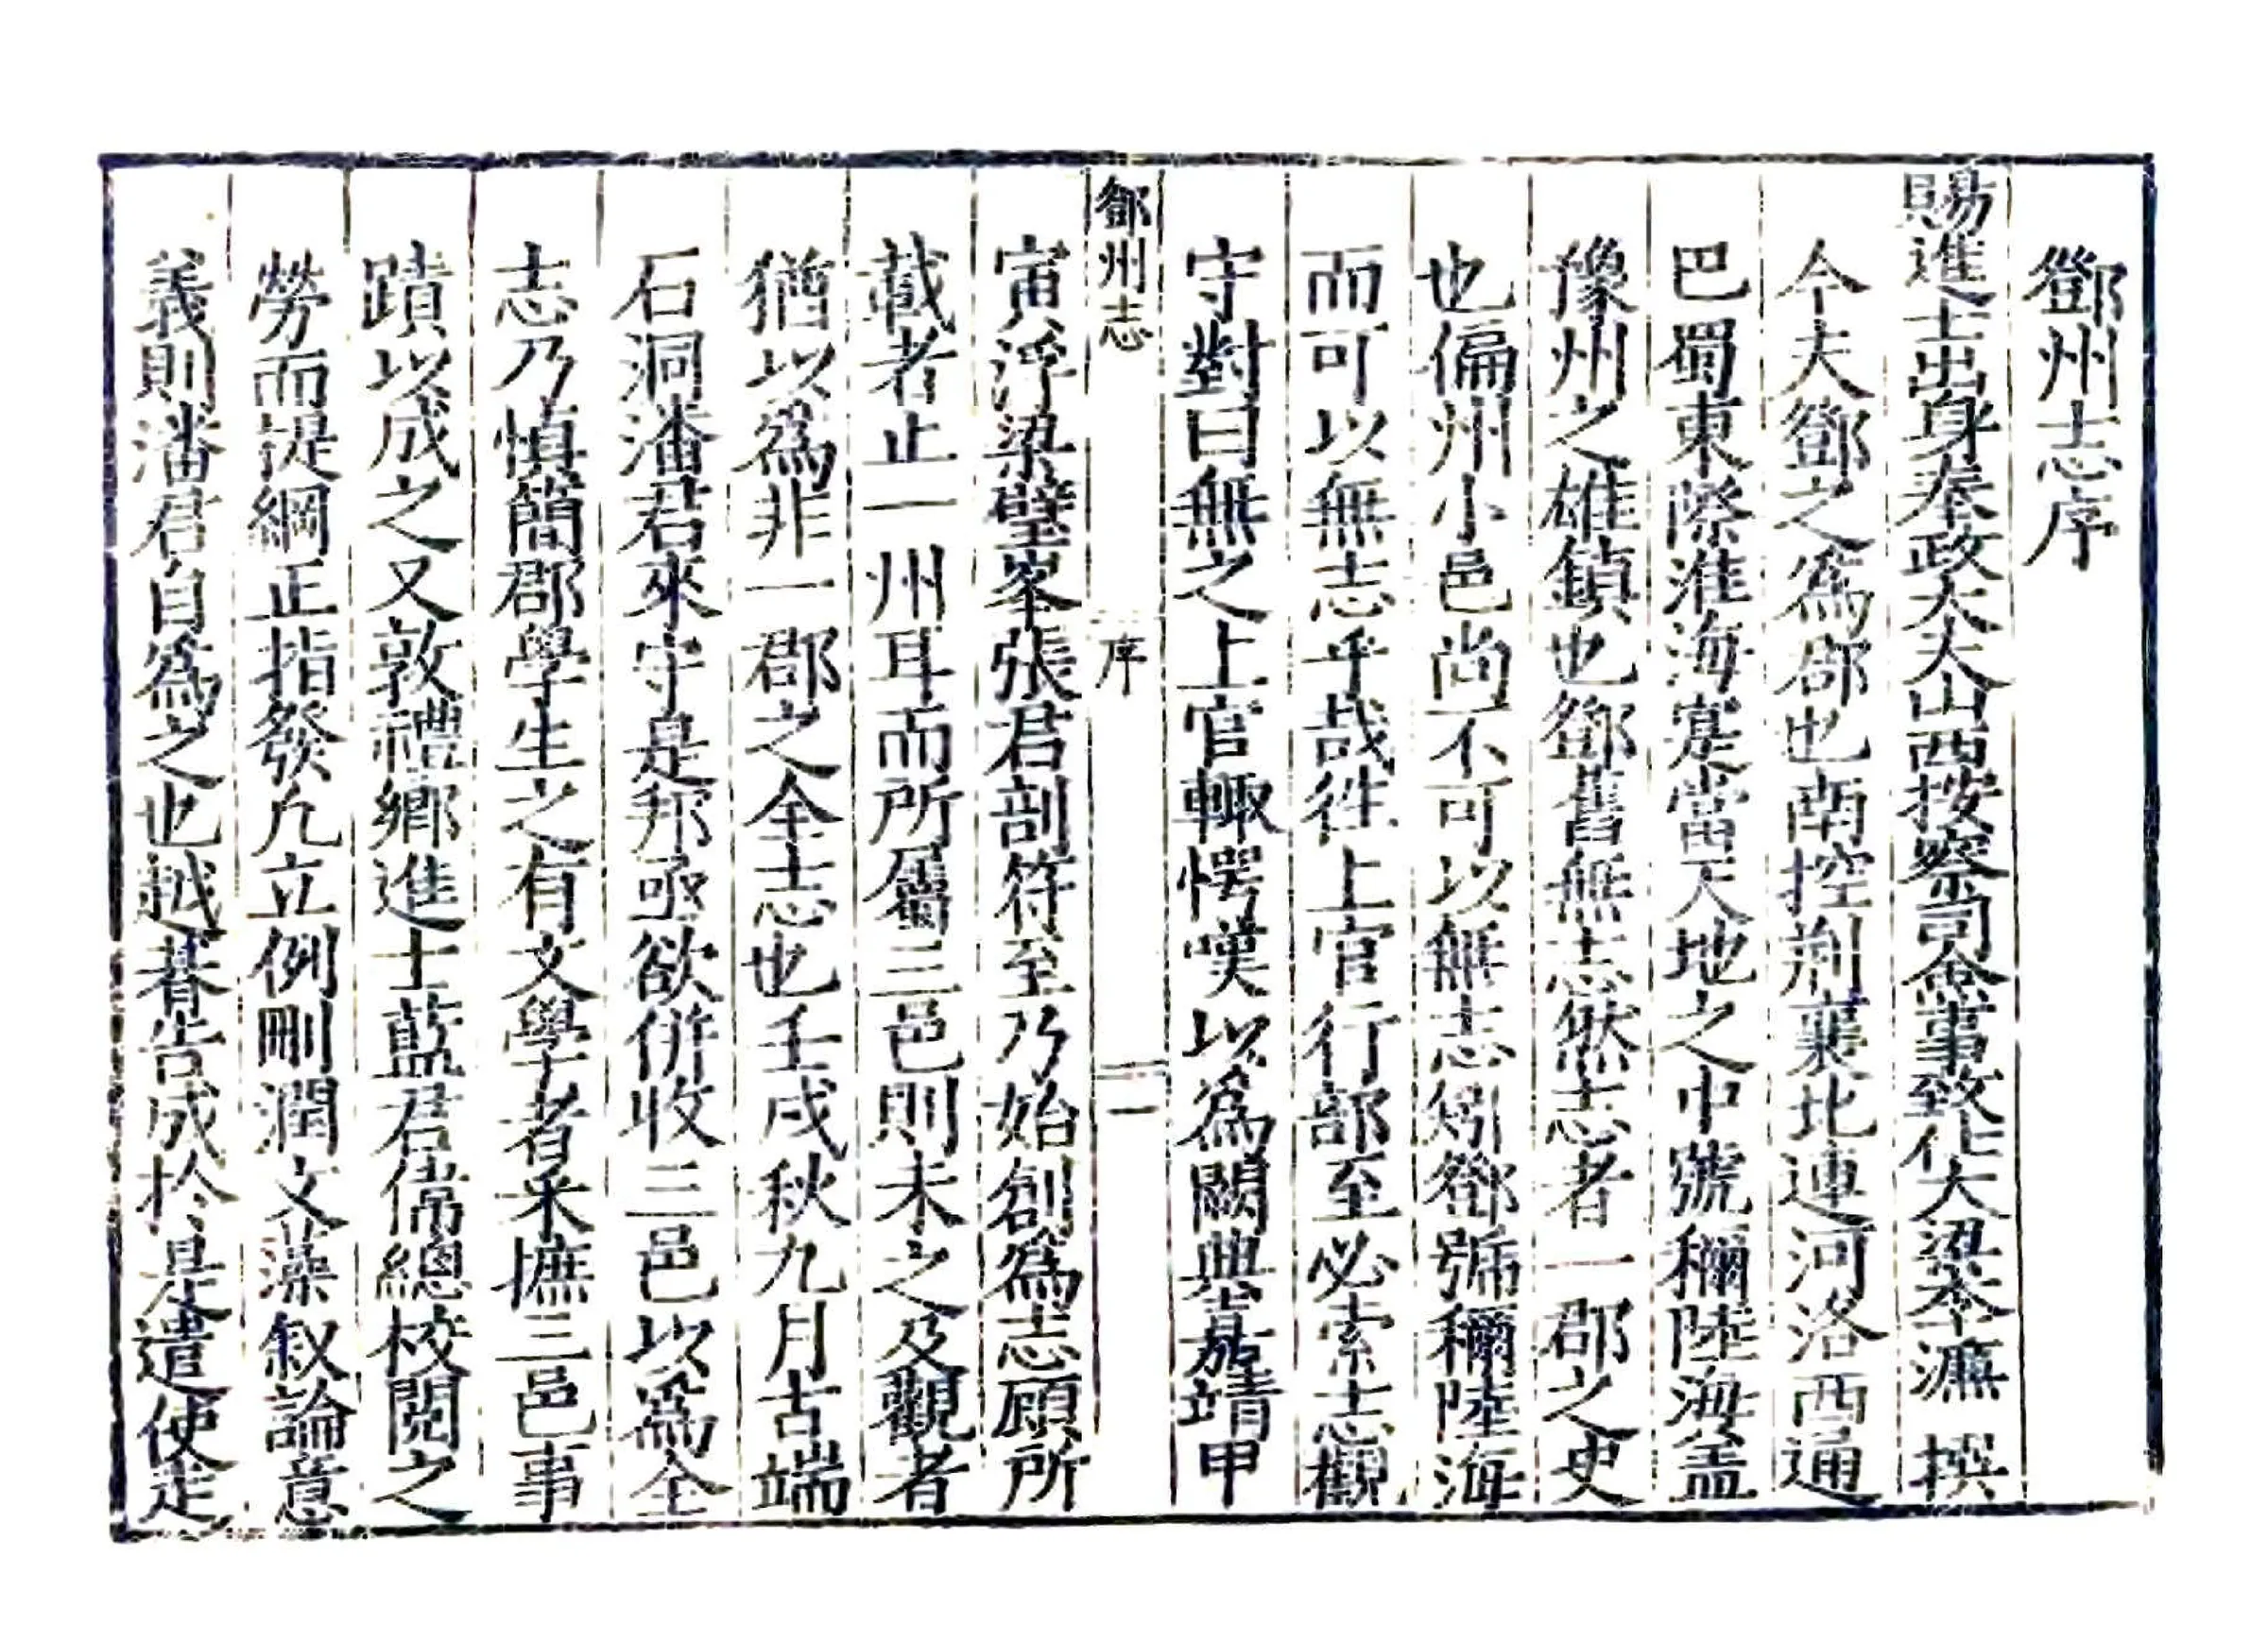 鄧州志序
賜進士出身奉政大夫山西按察司僉事致仕大梁李濂 撰
今夫鄧之爲郡也南控荆襄北連河洛西通
巴蜀東際淮海寔當天地之中號稱陸海盖
豫州之雄鎮也鄧舊無志然志者一郡之史
也偏州小邑尚不可以無志矧鄧號稱陸海
而可以無志乎哉徃上官行部至必索志觀
守對曰無之上官輙愕嘆以爲闕典嘉靖甲
鄧州志
序
一
寅浮梁璧峯張君剖符至乃始創爲志顧所
載者止一州耳而所屬三邑則未之及觀者
猶以爲非一郡之全志也壬戌秋九月古端
石洞潘君來守是邦亟欲併收三邑以爲全
志乃慎簡郡學生之有文學者采摭三邑事
蹟以成之又敦禮鄉進士藍君偉總校閱之
勞而提綱正指發凢立例刪潤文藻叙論意
義則潘君自爲之也越朞告成扵是遣使走